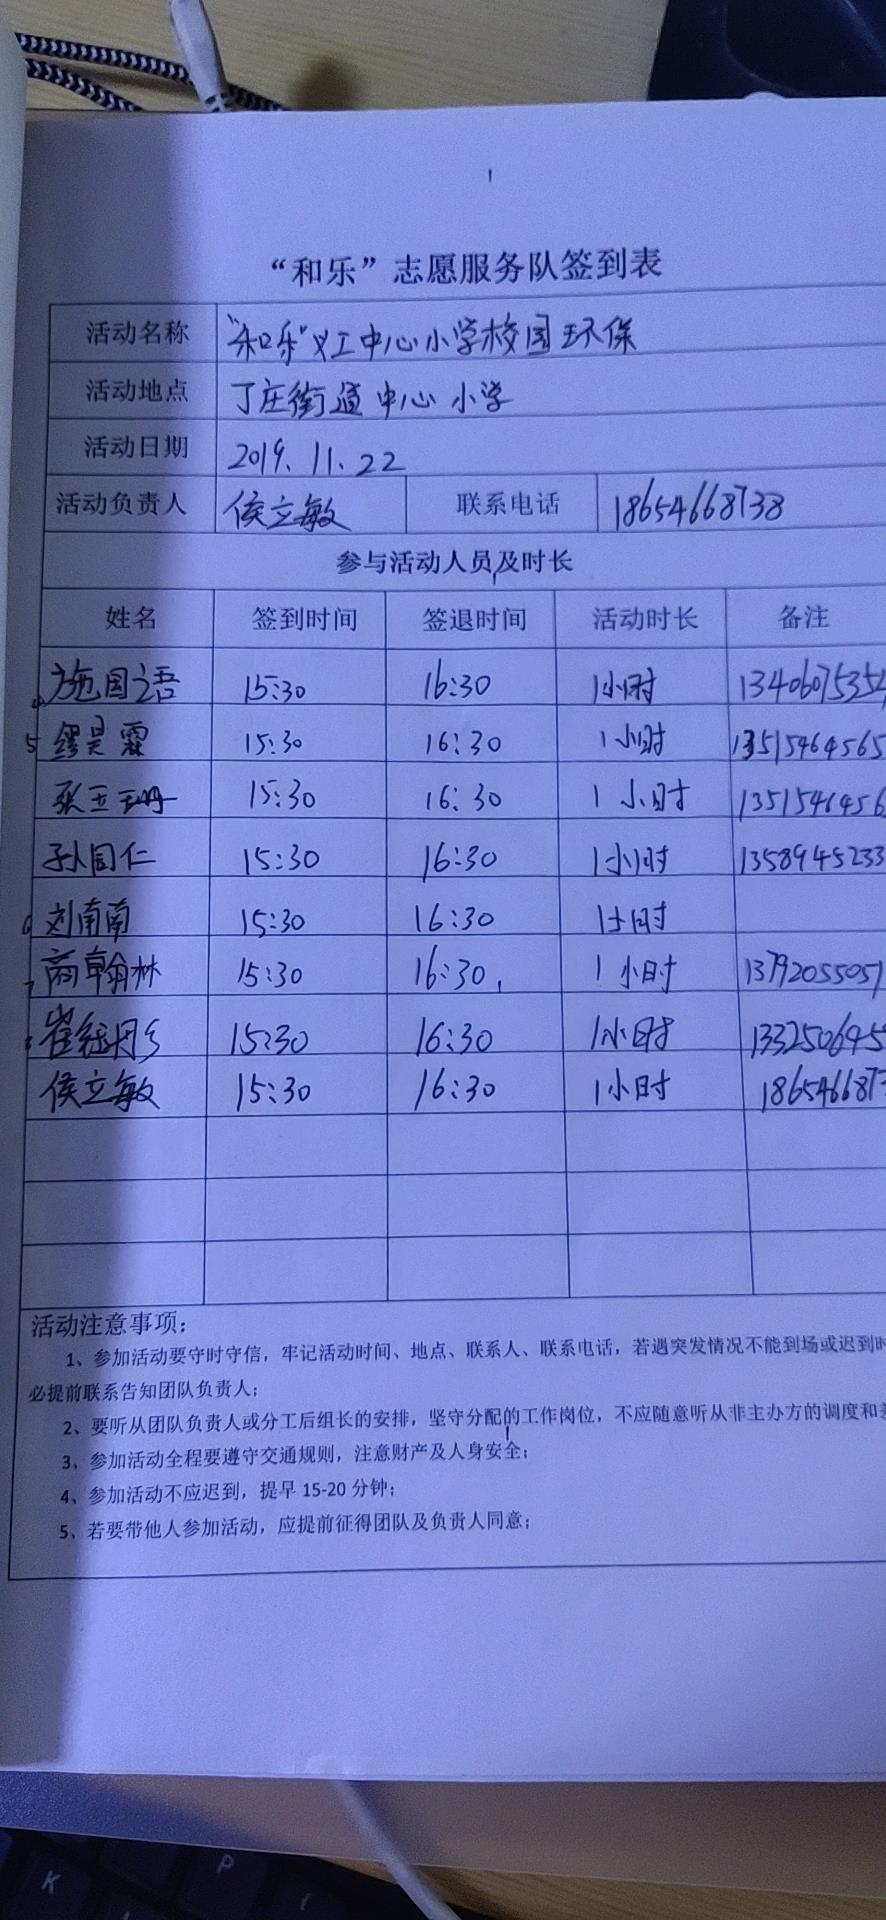 “和乐”志愿服务队签到表
活动名称 “和乐”义工中心小学校园环保
活动地点 丁庄街道中心小学
活动日期 2019.11.22
活动负责人 侯立敏 联系电话 18654668738
参与活动人员及时长
姓名 签到时间 签退时间 活动时长 备注
施国语 15:30 16:30 1小时 1340607535
5 缪昊霖 15:30 16:30 1小时 13515464565
张玉珊 15:30 16:30 1小时 1351546456
孙国仁 15:30 16:30 1小时 1358945233
刘南南 15:30 16:30 1小时
商翰林 15:30 16:30 1小时 13792055051
15:30 16:30 1小时 1332506458
侯立敏 15:30 16:30 1小时 186546687
活动注意事项：
1、参加活动要守时守信，牢记活动时间、地点、联系人、联系电话，若遇突发情况不能到场或迟到时
必提前联系告知团队负责人；
2、要听从团队负责人或分工后组长的安排，坚守分配的工作岗位，不应随意听从非主办方的调度和
3、参加活动全程要遵守交通规则，注意财产及人身安全；
4、参加活动不应迟到，提早 15-20 分钟；
5、若要带他人参加活动，应提前征得团队及负责人同意；
K
P